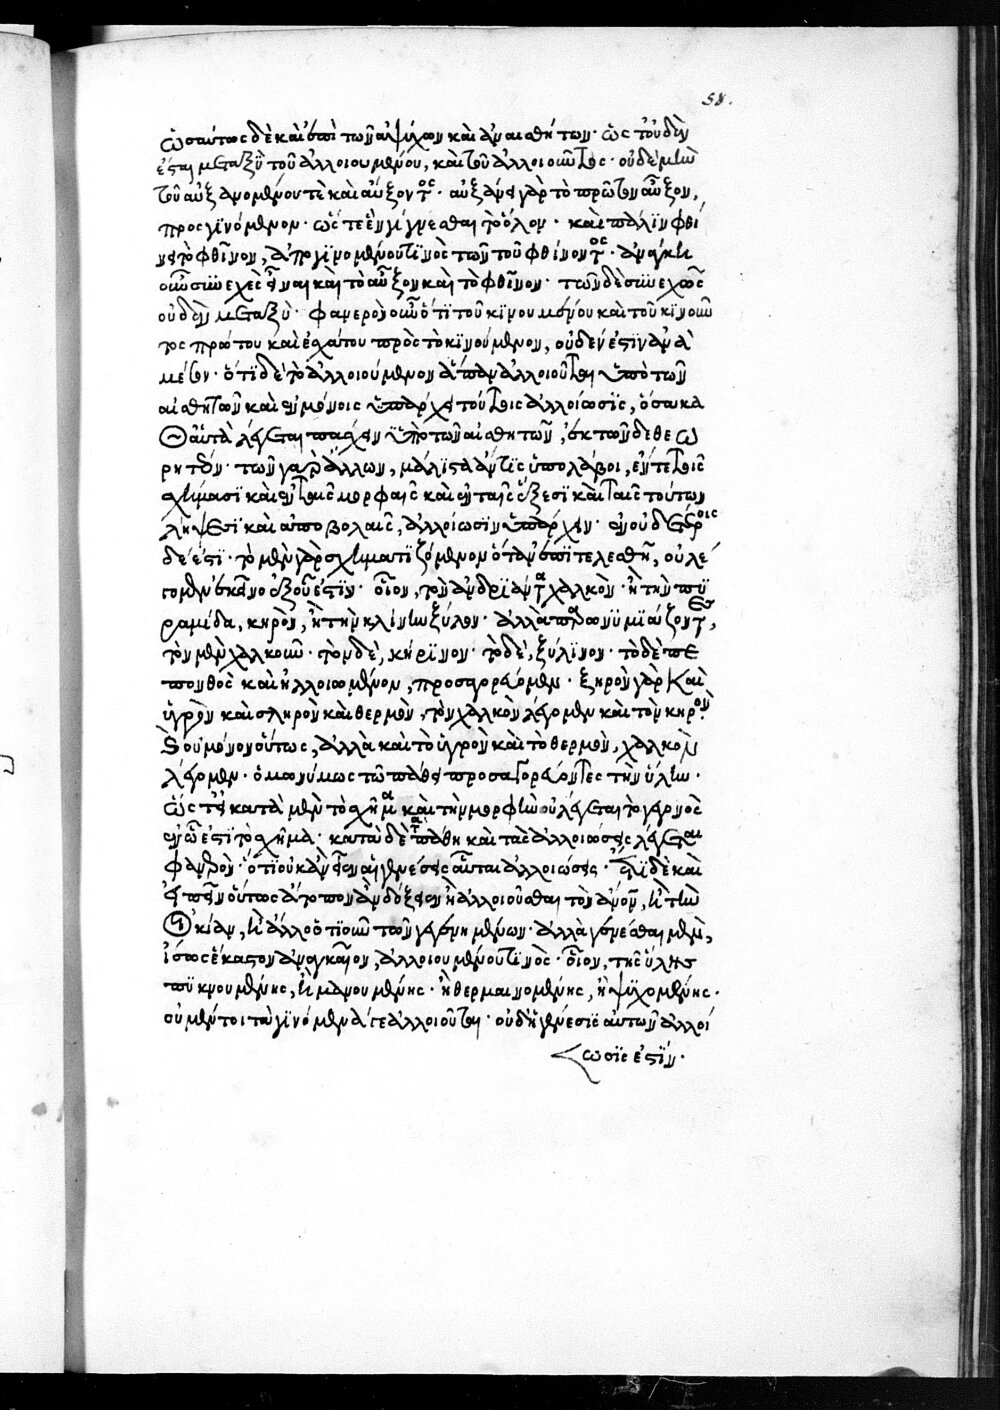 58.
ὡσαύτως δὲ καὶ ἐπὶ τῶν ἀψύχων καὶ ἀναισθήτων· ὥστ' οὐδὲν
ἔσται μεταξὺ τοῦ ἀλλοιουμένου, καὶ τοῦ ἀλλοιοῦντος· οὐδὲ μὴν
τοῦ αὐξανομένου τὲ καὶ αὔξοντος· αὐξάνει γὰρ τὸ πρῶτον αὖξον,
προσγινόμενον· ὥστε ἓν γίγνεσθαι τὸ ὅλον· καὶ πάλιν φθί
νει τὸ φθῖνον, ἀπογινομένου τινὸς τῶν τοῦ φθίνοντος· ἀνάγκη
οὖν συνεχὲς εἶναι καὶ τὸ αὖξον καὶ τὸ φθῖνον· τῶν δὲ συνεχῶν
οὐδὲν μεταξύ· φανερὸν οὖν ὅτι τοῦ κινουμένου καὶ τοῦ κινοῦν
τος πρώτου καὶ ἐσχάτου πρὸς τὸ κινούμενον, οὐδέν ἐστιν ἀνὰ
μέσον· ὅτι δὲ τὸ ἀλλοιούμενον ἅπαν ἀλλοιοῦται ὑπὸ τῶν
αἰσθητῶν καὶ ἐν μόνοις ὑπάρχει τούτοις ἀλλοίωσις, ὅσα κα
θ' αὑτὰ λέγεται πάσχειν ὑπὸ τῶν αἰσθητῶν, ἐκ τῶνδε θεω
ρητέον· τῶν γὰρ ἄλλων, μάλιστα ἄν τις ὑπολάβοι, ἔν τε τοῖς
σχήμασι καὶ ἐν ταῖς μορφαῖς καὶ ἐν ταῖς ἕξεσι καὶ ταῖς τούτων
λήψεσι καὶ ἀποβολαῖς, ἀλλοίωσιν ὑπάρχειν· ἐν οὐδετέροις
δέ ἐστι· τὸ μὲν γὰρ σχηματιζόμενον ὅταν ἐπιτελεσθῇ, οὐ λέ
γομεν ἐκεῖνο ἐξ οὗ ἐστιν· οἷον, τὸν ἀνδριάντα χαλκὸν· ἢ τὴν πυ
ραμίδα, κηρὸν, ἢ τὴν κλίνην ξύλον· ἀλλὰ παρωνυμιάζοντες,
τὸν μὲν χαλκοῦν· τὸν δὲ, κήρινον· τὸ δὲ, ξύλινον· τὸ δὲ πε
πονθὸς καὶ ἠλλοιωμένον, προσαγορεύομεν· ξηρὸν γὰρ καὶ
ὑγρὸν καὶ σκληρὸν καὶ θερμὸν, τὸν χαλκὸν λέγομεν καὶ τὸν κηρόν·
καὶ οὐ μόνον οὕτως, ἀλλὰ καὶ τὸ ὑγρὸν καὶ τὸ θερμὸν, χαλκὸν
λέγομεν· ὁμωνύμως τῷ πάθει προσαγορεύοντες τὴν ὕλην·
ὥστ' εἰ κατὰ μὲν τὸ σχῆμα καὶ τὴν μορφὴν οὐ λέγεται τὸ γεγονὸς
ἐν ᾧ ἐστι τὸ σχῆμα· κατὰ δὲ τὰ πάθη καὶ τὰς ἀλλοιώσεις λέγεται
φανερὸν· ὅτι οὐκ ἂν εἶεν αἱ γενέσεις αὗται ἀλλοιώσεις· ἔτι δὲ καὶ
εἰπεῖν οὕτως ἄτοπον ἂν δόξειεν ἠλλοιοῦσθαι τὸν ἄνον, ἢ τὴν
οἰκίαν, ἢ ἄλλο ὁτιοῦν τῶν γεγενημένων· ἀλλὰ γίνεσθαι μὲν,
ἴσως ἕκαστον ἀναγκαῖον, ἀλλοιουμένου τινὸς· οἷον, τῆς ὕλης
πυκνουμένης, ἢ μανουμένης· ἢ θερμαινομένης, ἢ ψυχομένης·
οὐ μέντοι τὰ γινόμενά γε ἀλλοιοῦται· οὐδ' ἡ γένεσις αὐτῶν ἀλλοί
ωσίς ἐστιν·